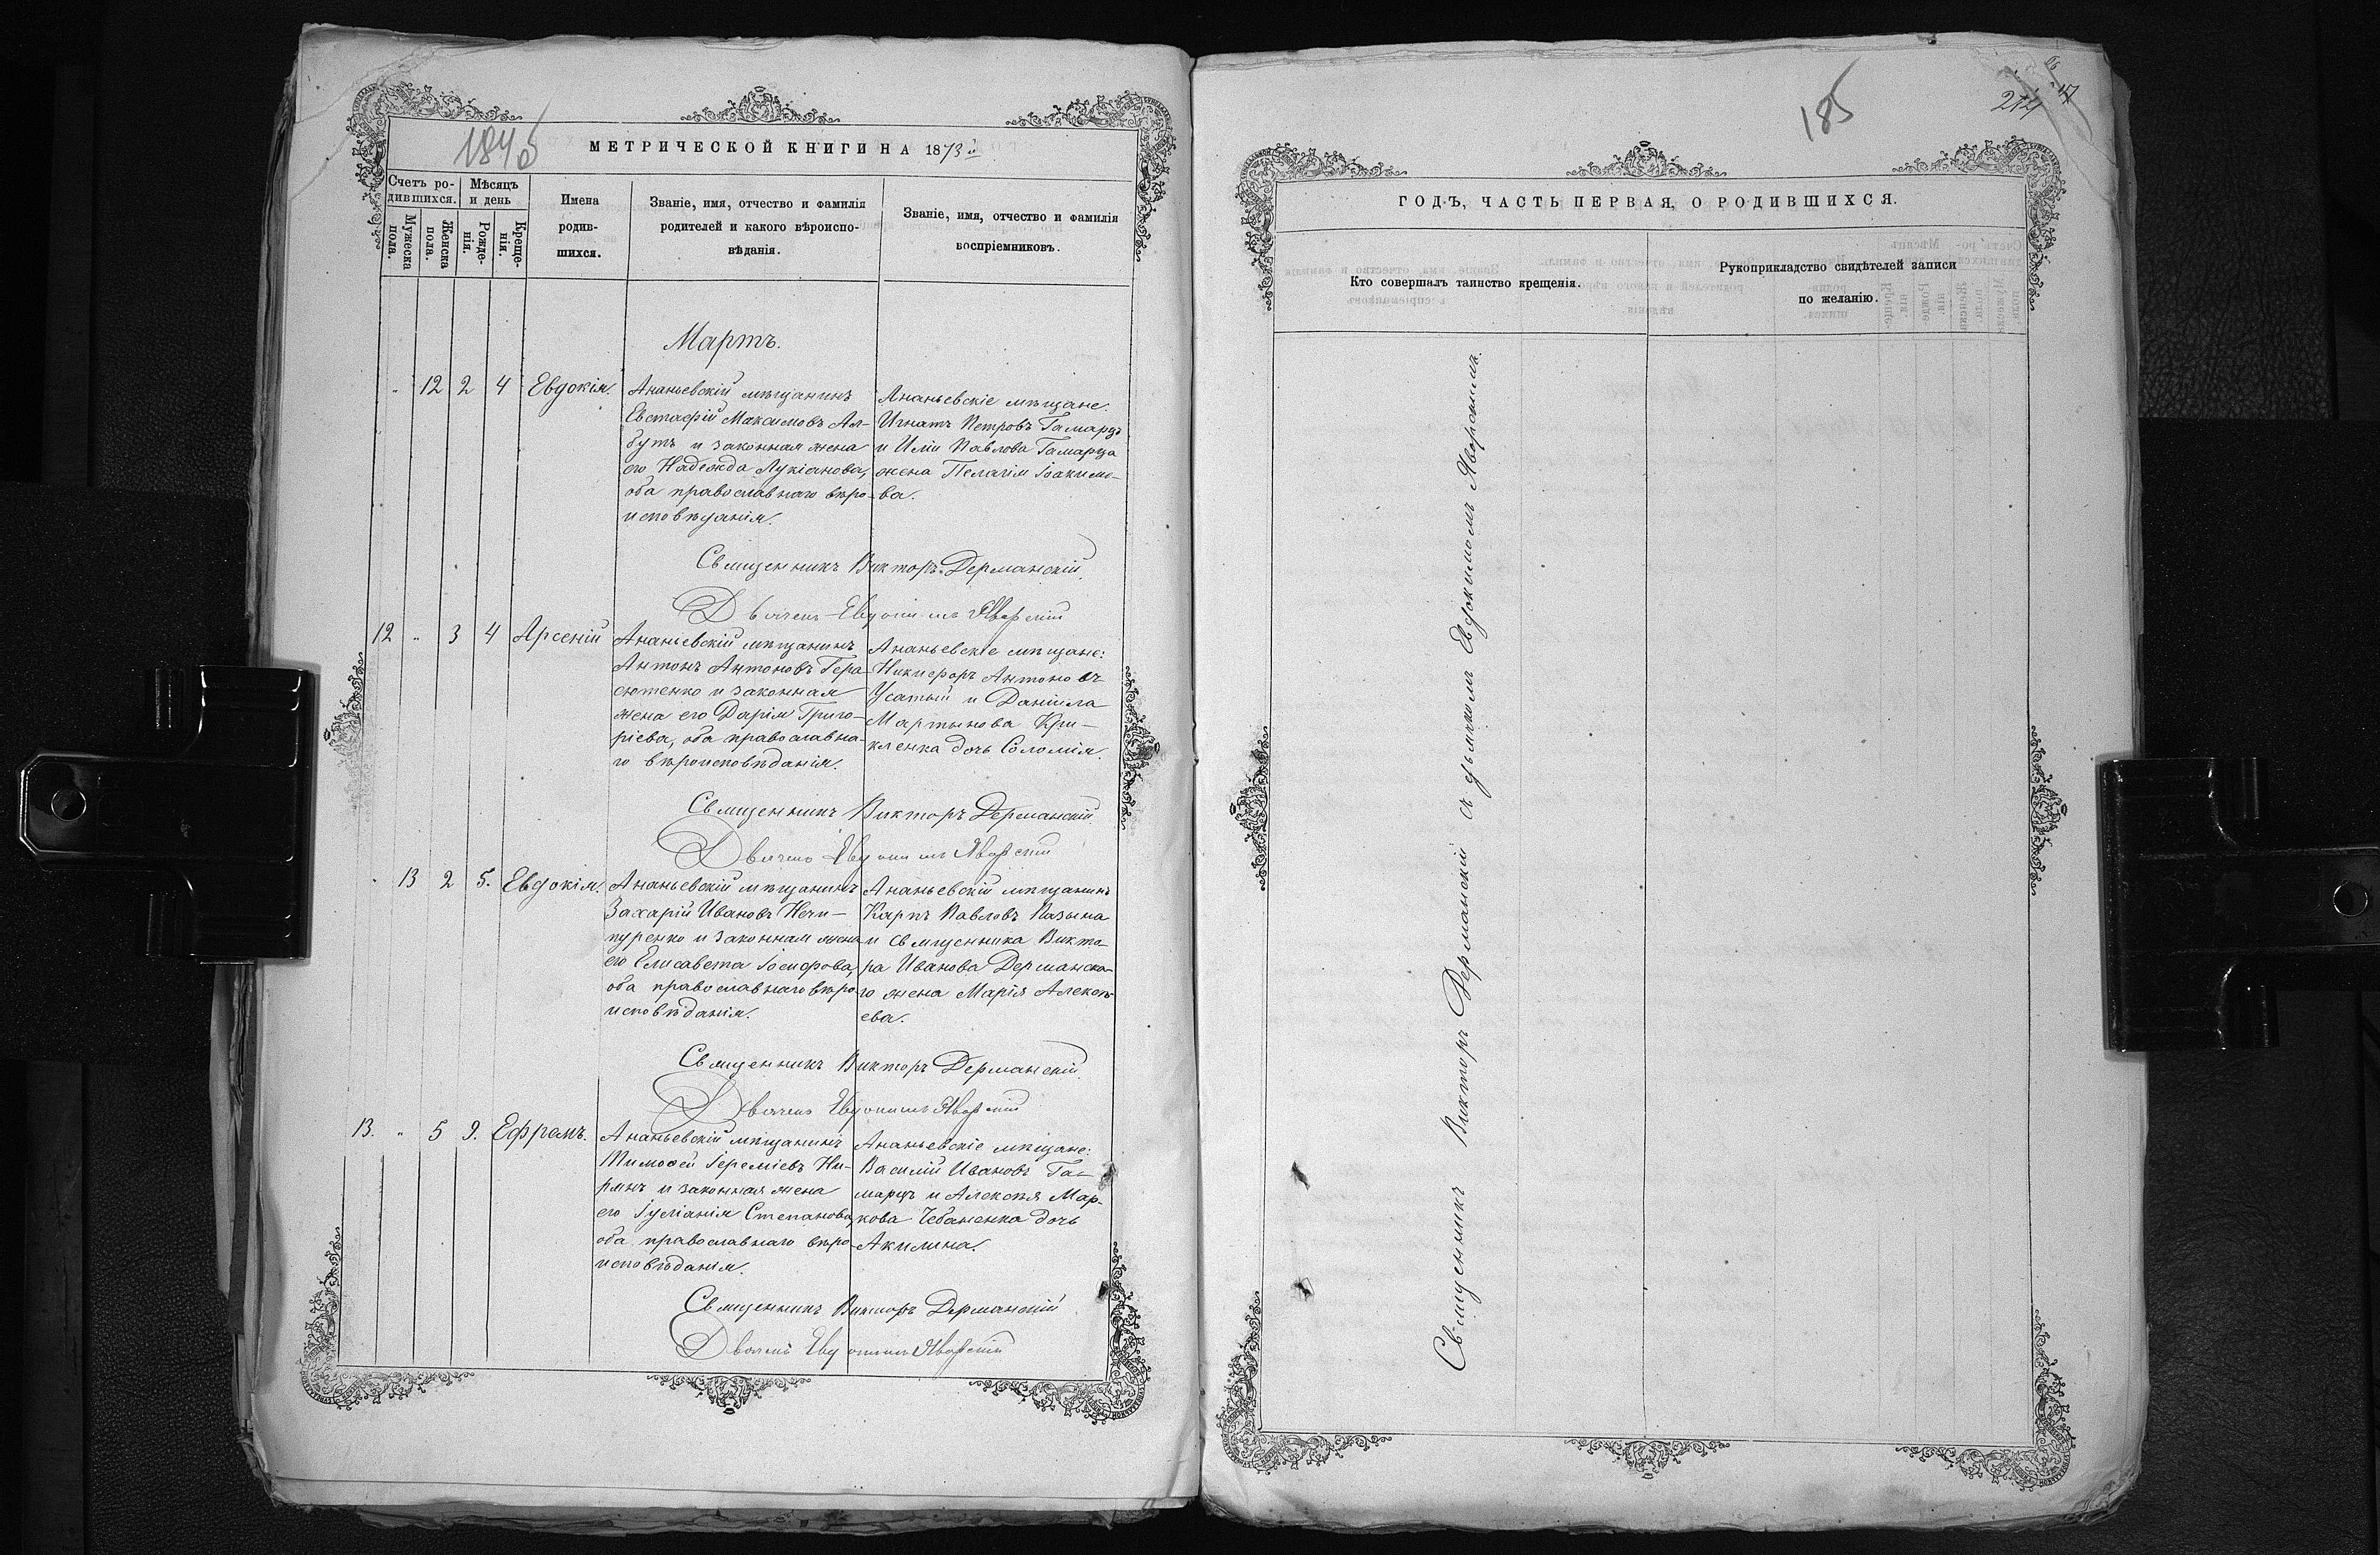 184об
МЕТРИЧЕСКОЙ КНИГИ НА 1873й
Счетъ ро-
дившихся.
Мѣсяцъ
и день
Мужеска
пола.
Женска
пола.
Рожде-
нія.
Креще-
нія.
Имена
родив-
шихся.
Званіе, имя, отчество и фамилія
родителей и какого вѣроиспо-
вѣданія.
Званіе, имя, отчество и фамилія
воспріемниковъ.
Мартъ.
" 12 2 4 Евдокія.
Ананьевскій мѣщанинъ
Евстафій Максимовъ Ал-
бутъ и законная жена
его Надежда Лукіанова,
оба православнаго вѣро-
исповѣданія.
Ананьевскіе мѣщане:
Игнатъ Петровъ Гамарцъ
и Иліи Павлова Гамарца
жена Пелагія Іоакимо-
ва.
Священникъ Викторъ Дерманскій
Дьячекъ Евдокимъ Яворскій
12 " 3 4 Арсеній
Ананьевскій мѣщанинъ
Антонъ Антоновъ Гера-
сютенко и законная
жена его Дарія Григо-
ріева, оба православна-
го вѣроисповѣданія.
Ананьевскіе мѣщане:
Никифоръ Антоновъ
Усатый и Даніила
Мартынова Кри-
кленка дочь Соломія.
Священникъ Викторъ Дерманскій
Дьячекъ Евдокимъ Яворскій
" 13 2 5. Евдокія.
Ананьевскій мѣщанинъ
Захарій Ивановъ Нечи-
пуренко и законная жена
его Елисавета Іосифова,
оба православнаго вѣро-
исповѣданія.
Ананьевскій мѣщанинъ
Карпъ Павловъ
и священника Викто-
ра Иванова Дерманска-
го жена Марія Алексѣ-
ева.
Священникъ Викторъ Дерманскій
Дьячекъ Евдокимъ Яворскій
13. " 5 9. Ефремъ.
Ананьевскій мѣщанинъ
Тимоѳей Іереміевъ Ки-
рякъ и законная жена
его Іуліанія Степанова,
оба православнаго вѣро-
исповѣданія.
Ананьевскіе мѣщане:
Василій Ивановъ Га-
марцъ и Алексѣя Мар-
кова Чебаненка дочь
Акилина.
Священникъ Викторъ Дерманскій
Дьячекъ Евдокимъ Яворскій
185
ГОДЪ, ЧАСТЬ ПЕРВАЯ, О РОДИВШИХСЯ.
Кто совершалъ таинство крещенія.
Рукоприкладство свидѣтелей записи
по желанію.
Священникъ Викторъ Дерманскій съ дьячкомъ Евдокимомъ Яворскимъ.